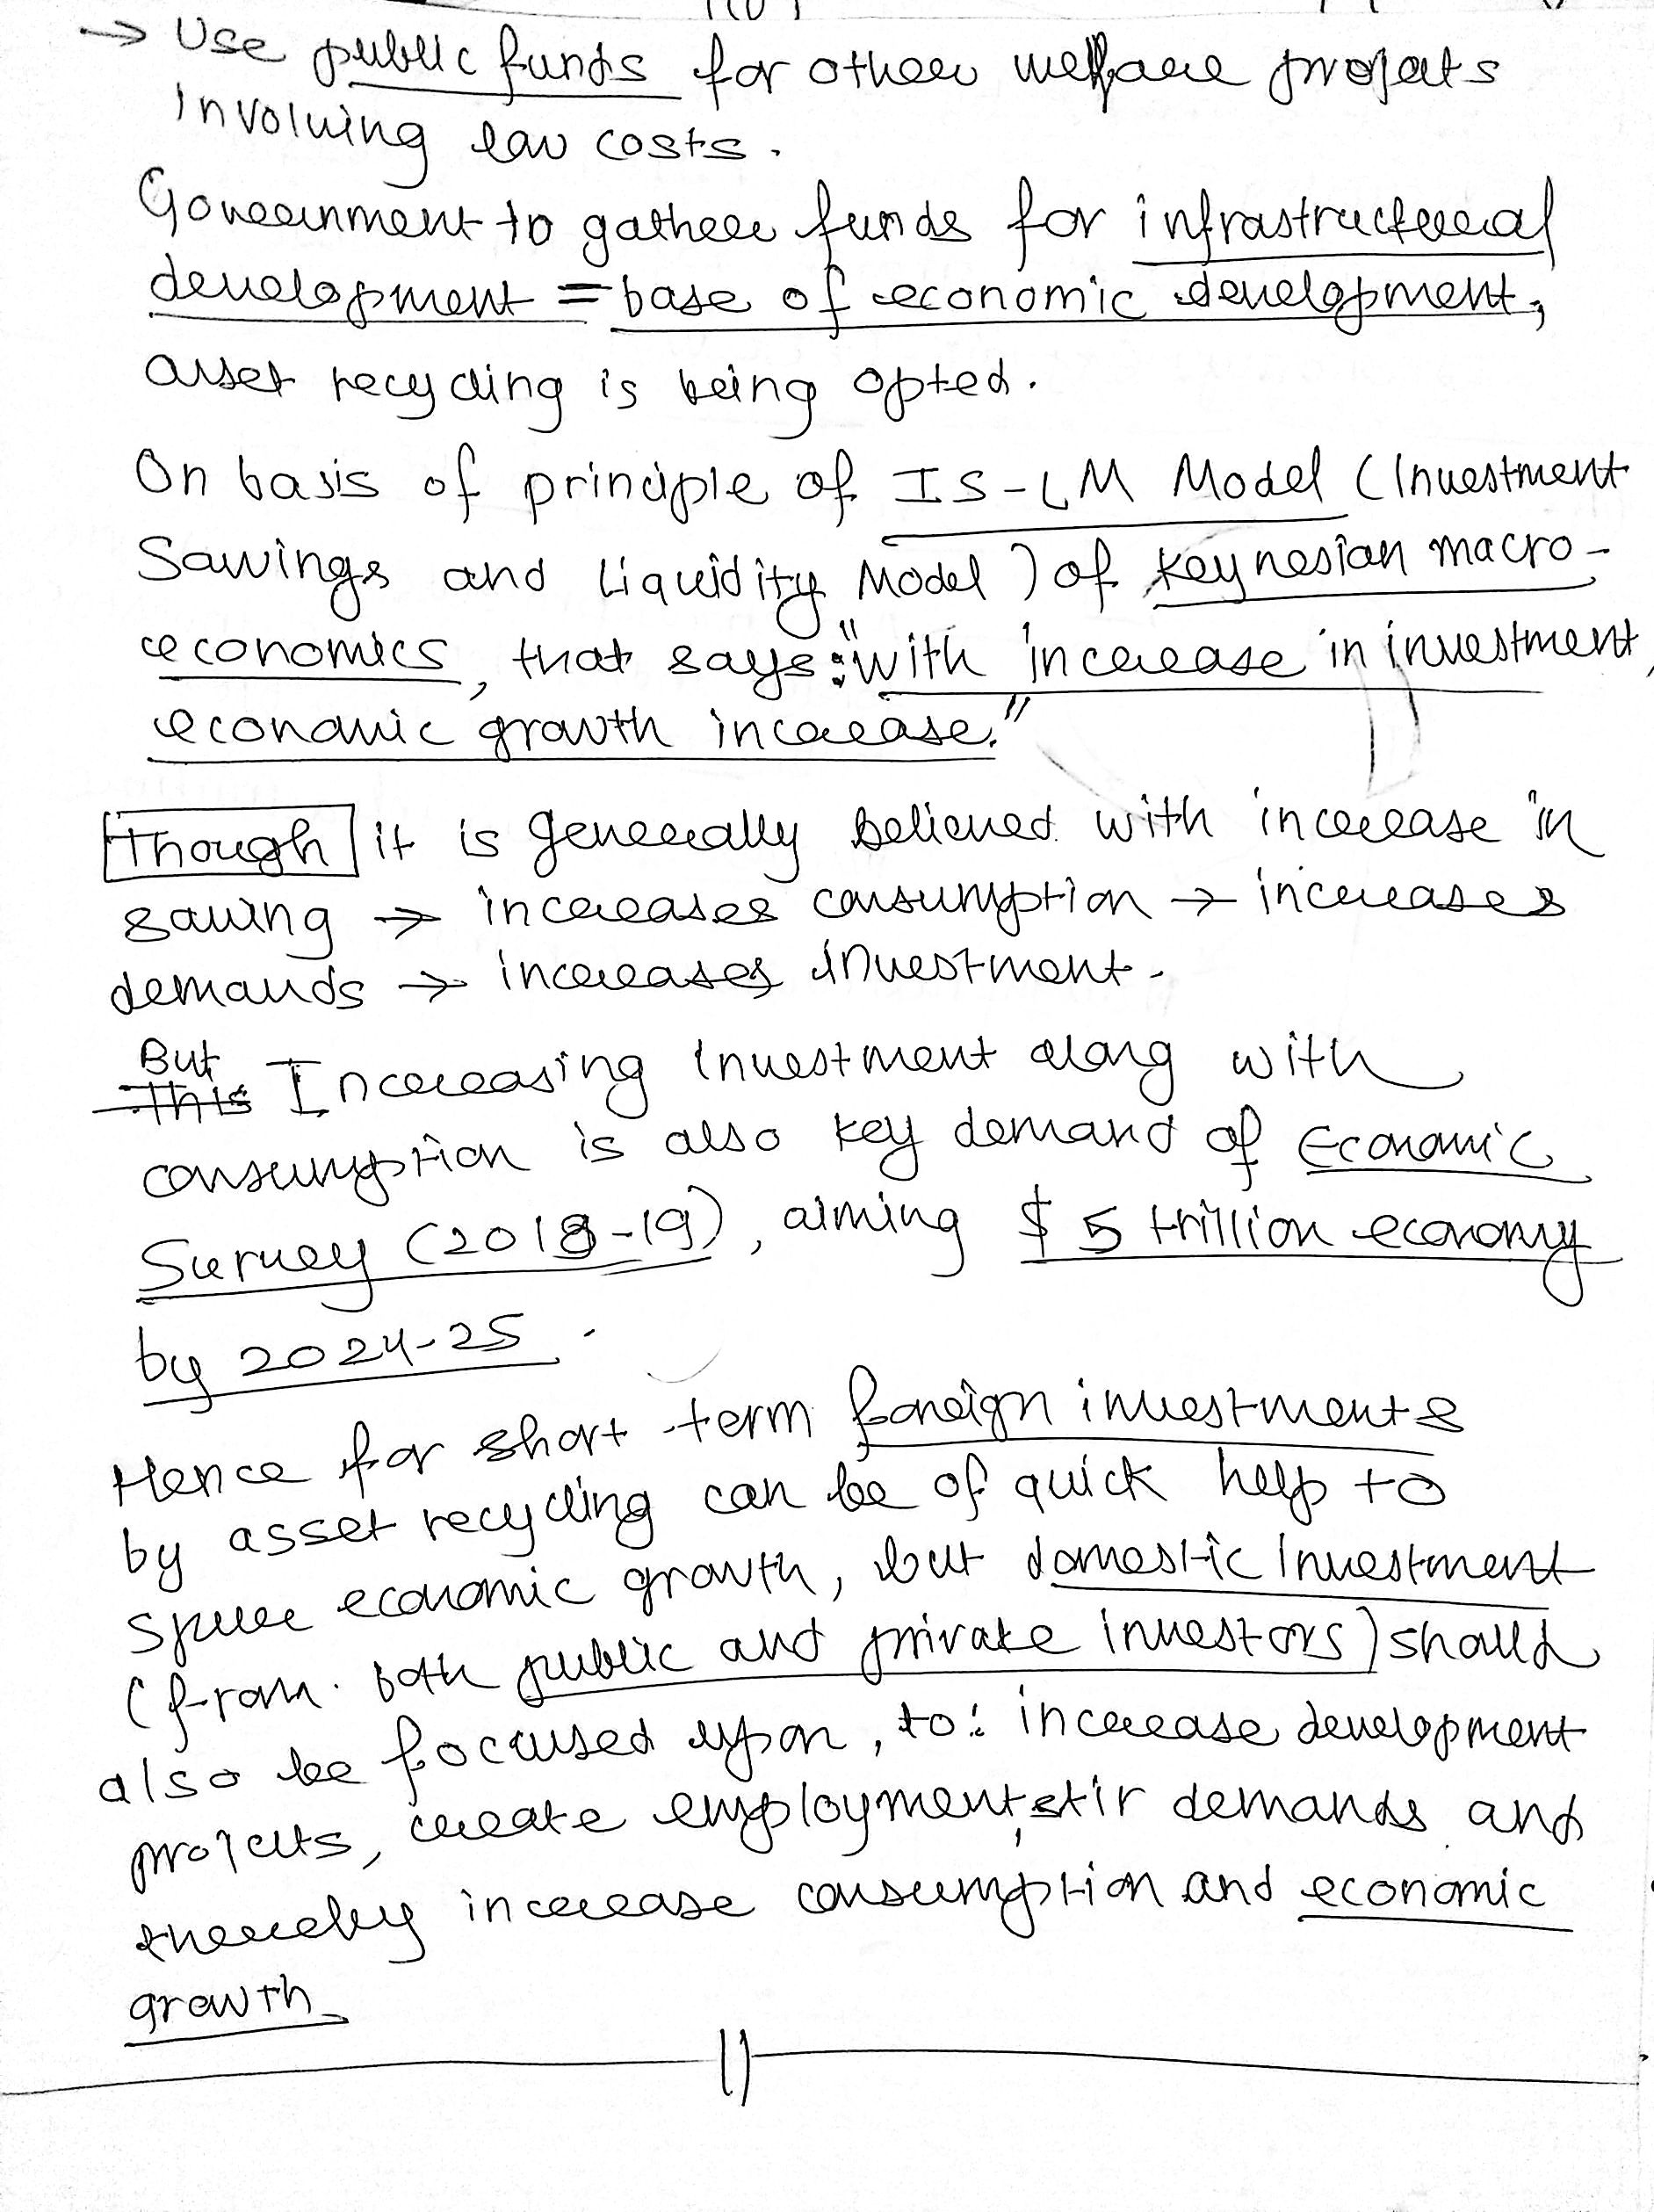 → Use public funds for other welfare projects
involving low costs.
Government to gather funds for infrastructural
development = base of economic development,
asset recycling is being opted.
On basis of principle of IS-LM Model (Investment
Savings and Liquidity Model) of Keynesian macro-
economics, that says: "with increase in investment,
economic growth increase."
Though it is generally believed with increase in
saving → increases consumption → increases
demands → increases investment.
But
This Increasing investment along with
consumption is also key demand of Economic
Survey (2018-19), aiming $ 5 trillion economy
by 2024-25.
Hence for short term foreign investments
by asset recycling can be of quick help to
spur economic growth, but domestic investment
(from both public and private investors) should
also be focused upon, to: increase development
projects, create employment, stir demands and
thereby increase consumption and economic
growth